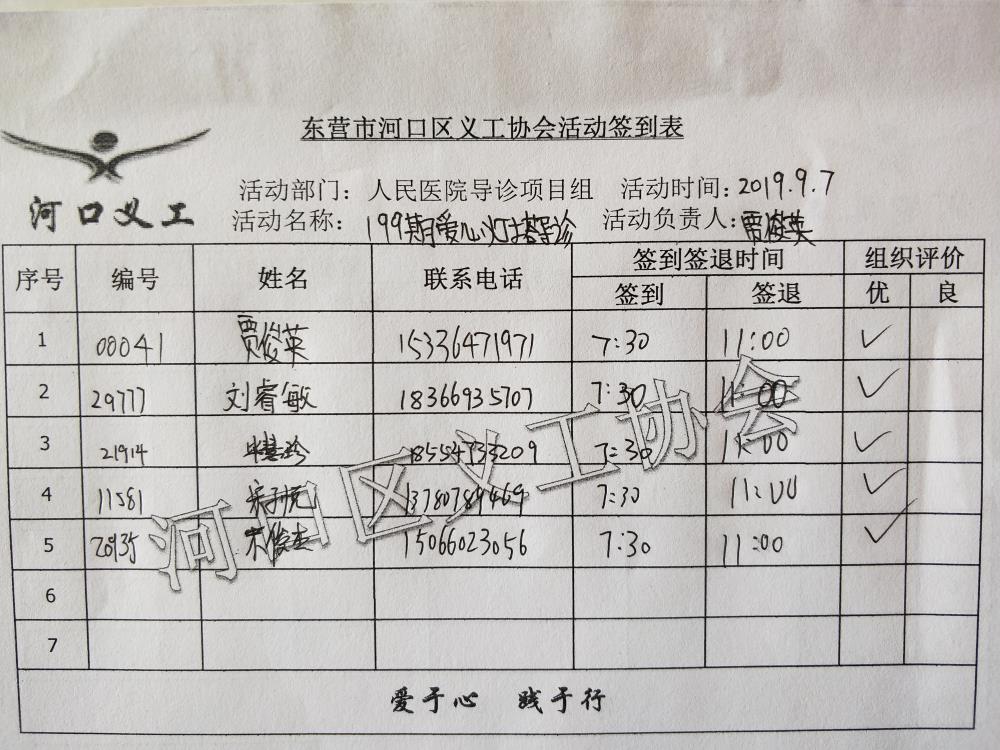 东营市河口区义工协会活动签到表
河口义工
活动部门： 人民医院导诊项目组 活动时间：2019.9.7
活动名称： 199期爱心灯塔导诊 活动负责人：贾俊英
序号 编号 姓名 联系电话 签到签退时间 组织评价
签到 签退 优 良
1 00041 贾俊英 15336471971 7:30 11:00 ✓
2 29777 刘睿敏 18366935707 7:30 11:00 ✓
3 21914 18554733209 7:30 11:00 ✓
4 11581 13780789469 7:30 11:00 ✓
5 宋俊杰 15066023056 7:30 11:00 ✓
6
7
爱于心 践于行
河口区义工协会